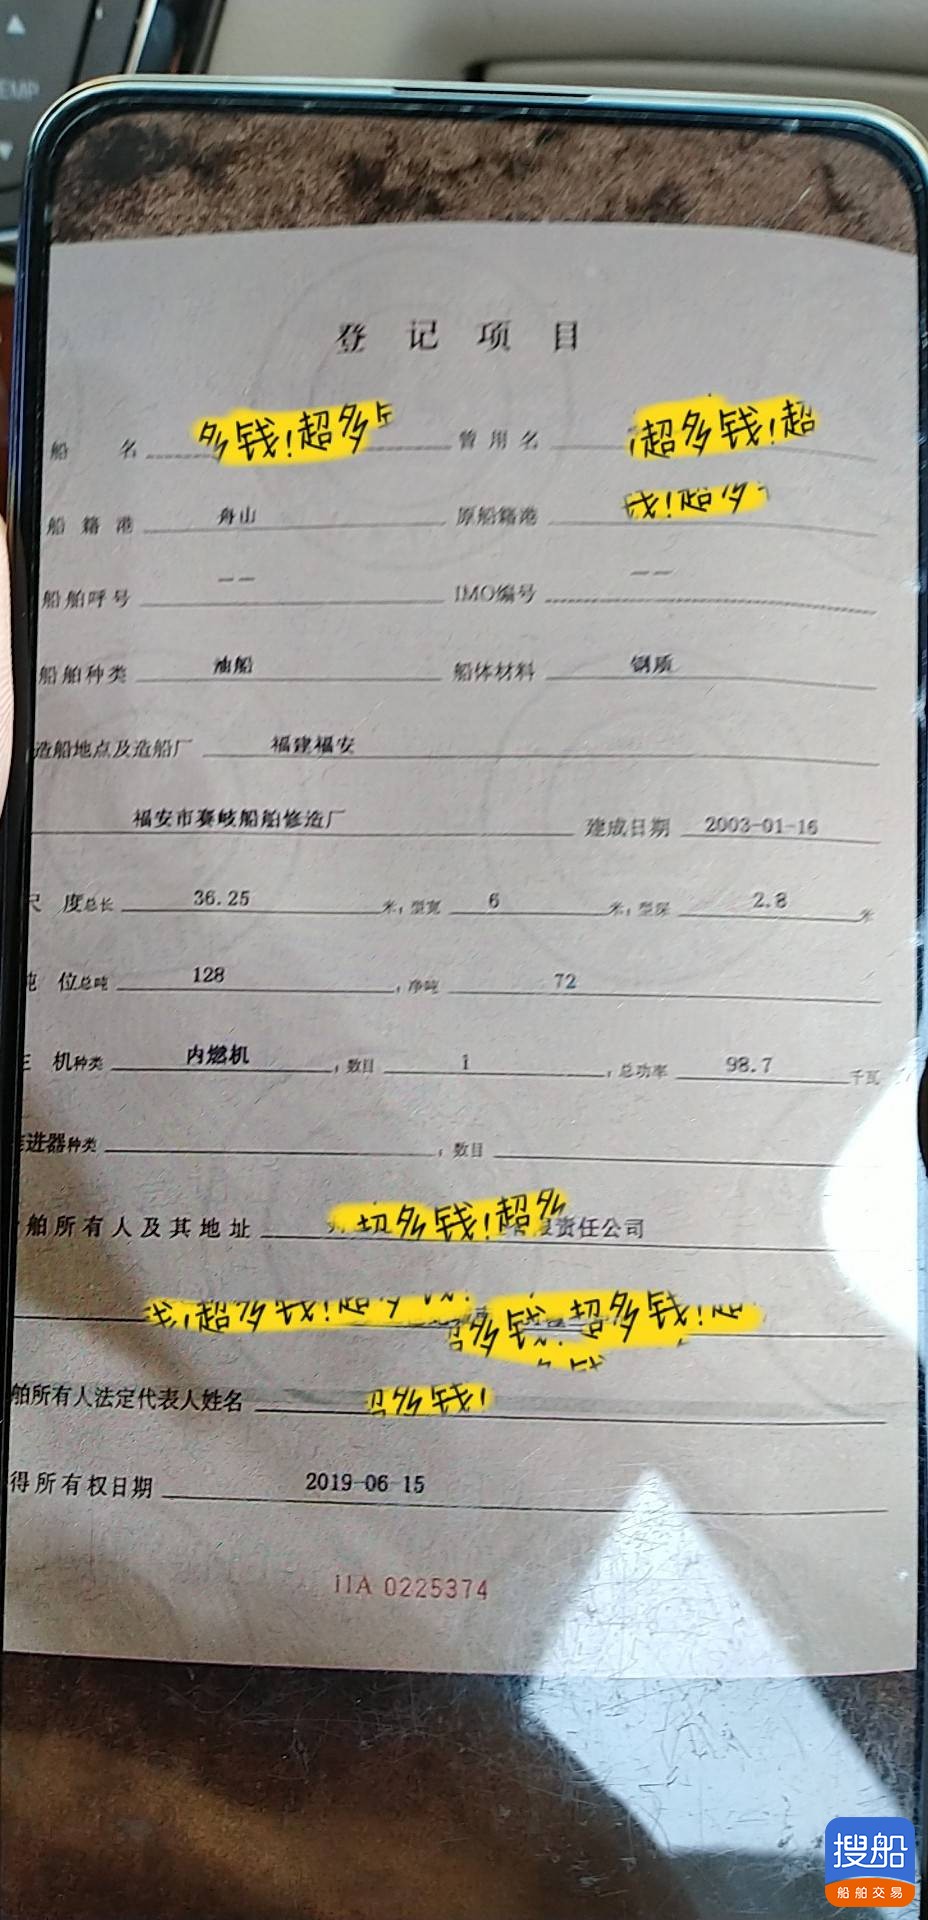 EMP
登记项目
船名 多钱!超多 曾用名 超多钱!超
船籍港 舟山 原船籍港 钱!超多
船舶呼号 -- IMO编号 --
船舶种类 油船 船体材料 钢质
造船地点及造船厂 福建福安
福安市赛岐船舶修造厂 建成日期 2003-01-16
尺度总长 36.25 米,型宽 6 米,型深 2.8 米
吨位总吨 128 ,净吨 72
主机种类 内燃机 ,数目 1 ,总功率 98.7 千瓦
进器种类 ,数目
舶所有人及其地址 多钱!超多 责任公司
钱!超多钱!超多 多钱 超多钱!超
多钱
舶所有人法定代表人姓名 多钱!
得所有权日期 2019-06-15
IIA 0225374
搜船
船舶交易